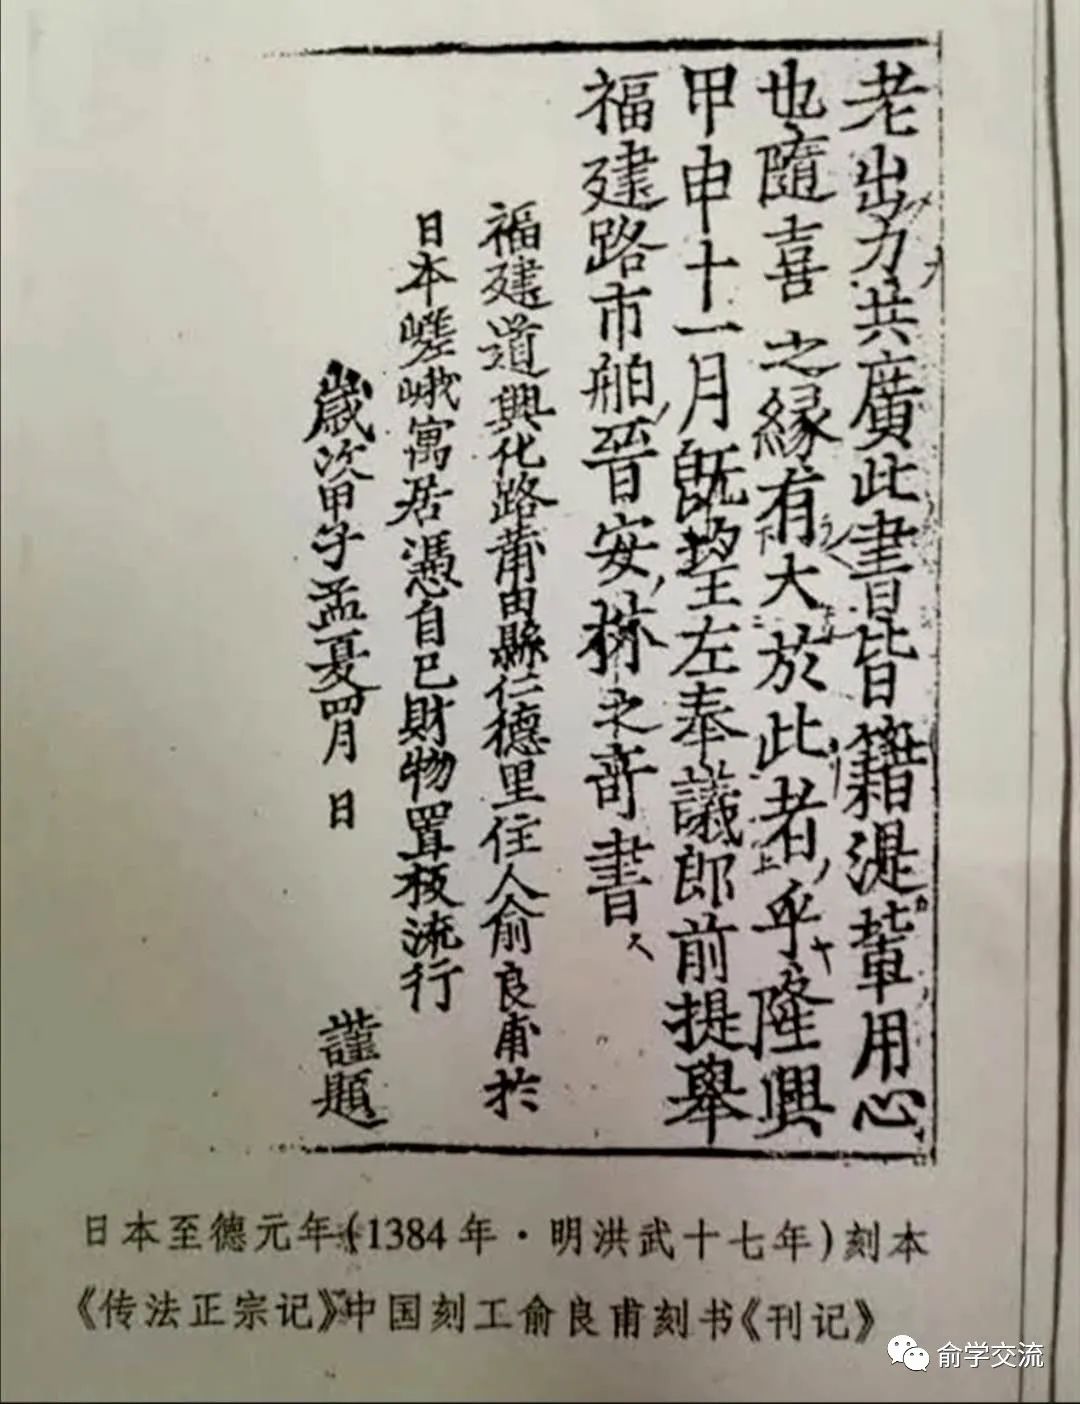 老出力共廣此書皆籍湜輩用心
也隨喜之緣有大於此者乎隆興
甲申十一月既望左奉議郎前提舉
福建路市舶晉安林之奇書
福建道興化路莆田縣仁德里住人俞良甫於
日本嵯峨寓居憑自己財物置板流行
歲次甲子孟夏四月 日 謹題
日本至德元年(1384年·明洪武十七年)刻本
《传法正宗记》中国刻工俞良甫刻书《刊记》
俞学交流